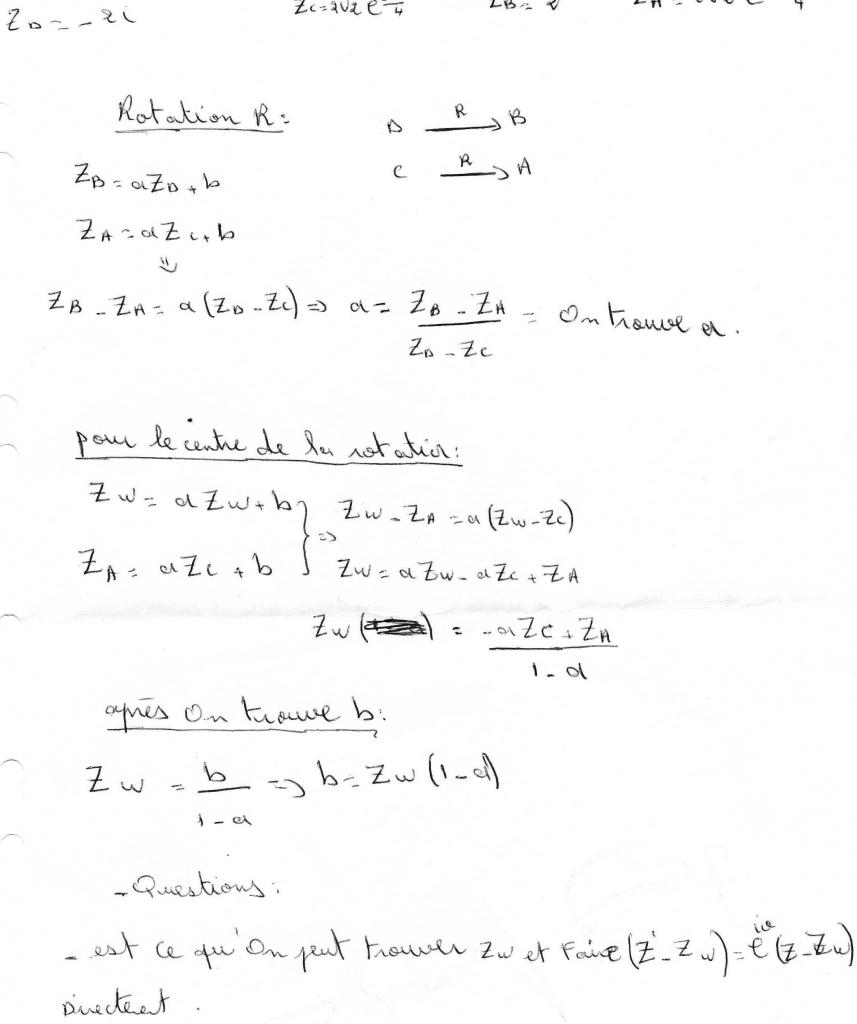 Z_D = -2i
Rotation R:
D —R→ B
Z_B = aZ_D + b
C —R→ A
Z_A = aZ_C + b
⇓
Z_B - Z_A = a(Z_D - Z_C) ⇒ a = (Z_B - Z_A) / (Z_D - Z_C) = On trouve a.
pour le centre de la rotation:
Z_W = aZ_W + b } ⇒ Z_W - Z_A = a(Z_W - Z_C)
Z_A = aZ_C + b } Z_W = aZ_W - aZ_C + Z_A
Z_W ( ) = (-aZ_C + Z_A) / (1 - a)
après On trouve b:
Z_W = b / (1 - a) ⇒ b = Z_W (1 - a)
- Questions:
- est ce qu'On peut trouver Z_W et Faire (Z' - Z_W) = e^iθ (Z - Z_W)
Directent.